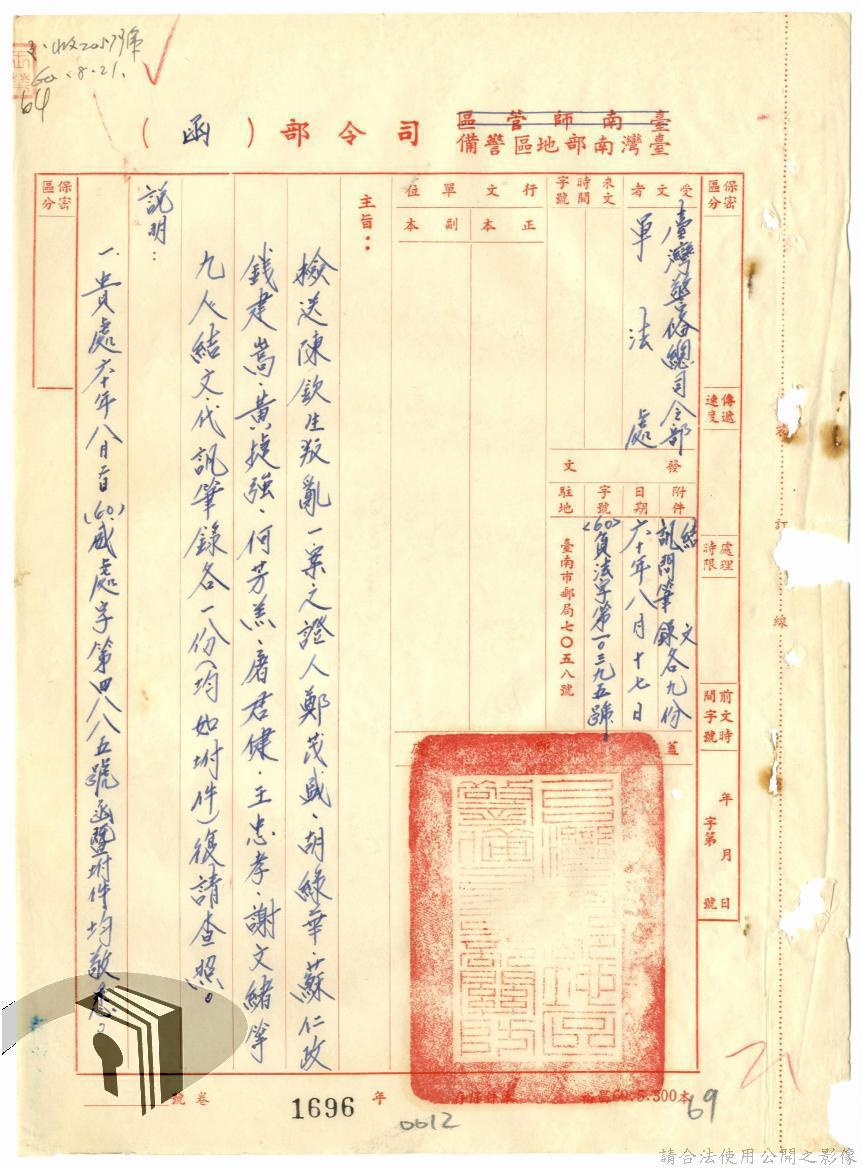 收2057號
60.8.21.
64
臺南師管區
臺灣南部地區警備
司令部(函)
保密區分
受文者
臺灣警備總司令部
軍法處
來文
時間
字號
行文單位
正本
副本
傳遞速度
處理時限
前文時間字號
年月日
字第號
發文
附件
結文
訊問筆錄各九份
日期
六十年八月十七日
字號
(60)負法字第一〇三九五號
駐地
臺南市郵局七〇五八號
蓋
裝訂線
主旨:
檢送陳欽生叛亂一案之證人鄭茂盛、胡綠華、蘇仁政
錢建嵩、黃捷強、何芳羔、唐君健、王忠孝、謝文緒等
九人結文、代訊筆錄各一份(均如坿件)復請查照。
說明:
一、貴處六十年八月
(60)咸處字第四八八五號函暨坿件均敬悉。
保密區分
卷號
1696
年
60.5.300本
69
0012
21
請合法使用公開之影像